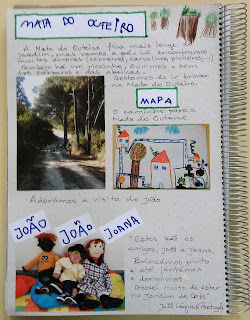 MATA DO OUTEIRO
A Mata do Outeiro fica mais longe
Jardim, mas vamos a pé. Lá encontramos
muitas árvores (sobreiros, carvalhos, pinheiros...)
Também há um riozinho, ouvimos o som
dos pássaros e das abelhas.
Gostamos de ir brincar
na Mata do Outeiro.
MAPA
O caminho para a
Mata do Outeiro.
Adorámos a visita do João
JOÃO
JOÃO
JOANA
"Estes são os
amigos, João e Joana.
Brincámos muito
e até jantámos
e dormimos.
Gostei muito de estar
no Jardim de